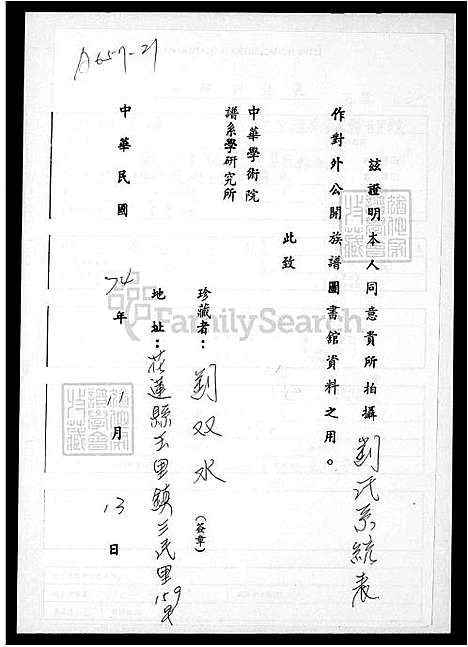 A657-21
茲證明本人同意貴所拍攝劉氏系統表
作對外公開族譜圖書館資料之用。
此致
中華學術院
譜系學研究所
珍藏者：劉双水（簽章）
地址：花蓮縣玉里鎮三民里159号
中華民國74年11月13日
FamilySearch